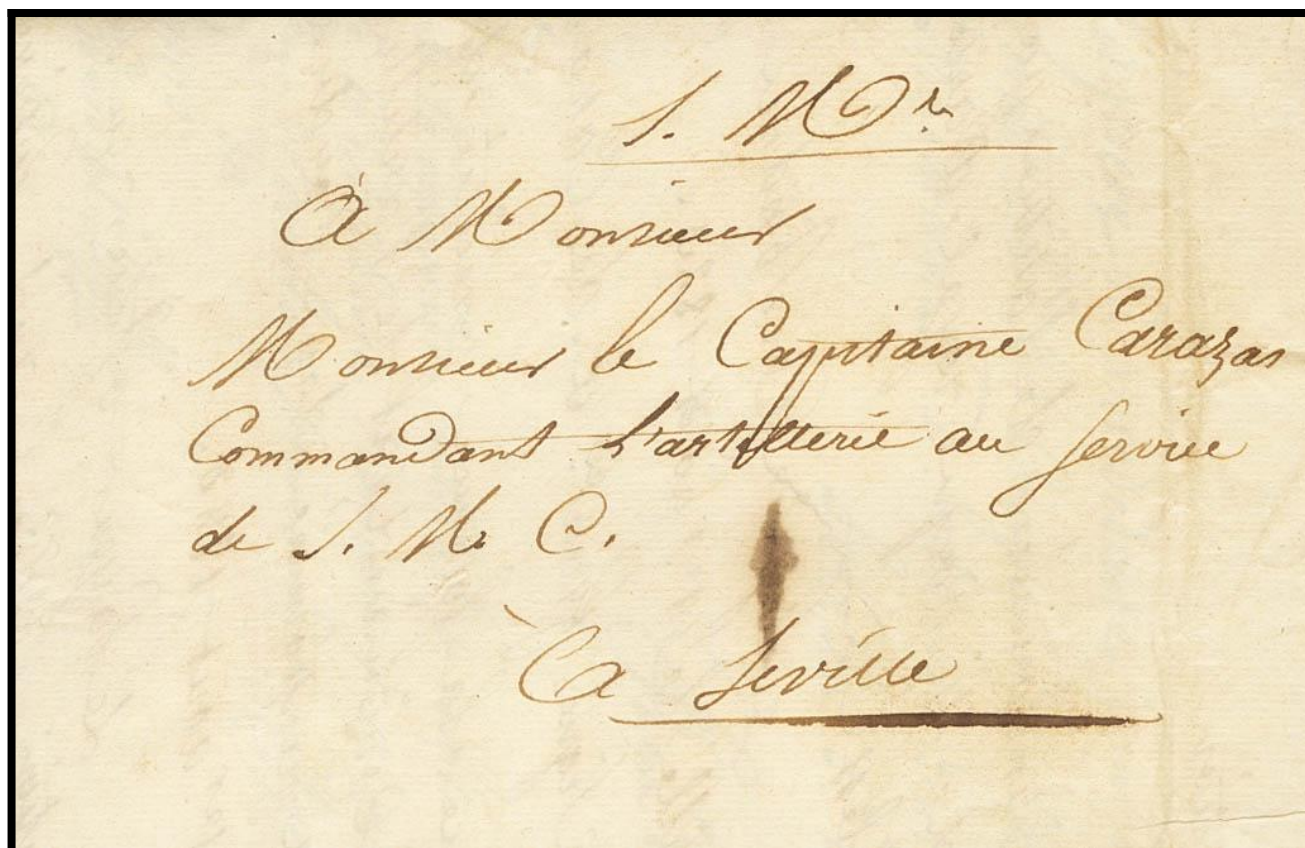 S. Mre
À Monsieur
Monsieur le Capitaine Carazas
Commandant l'artillerie au service
de S. M. C.
À Seville